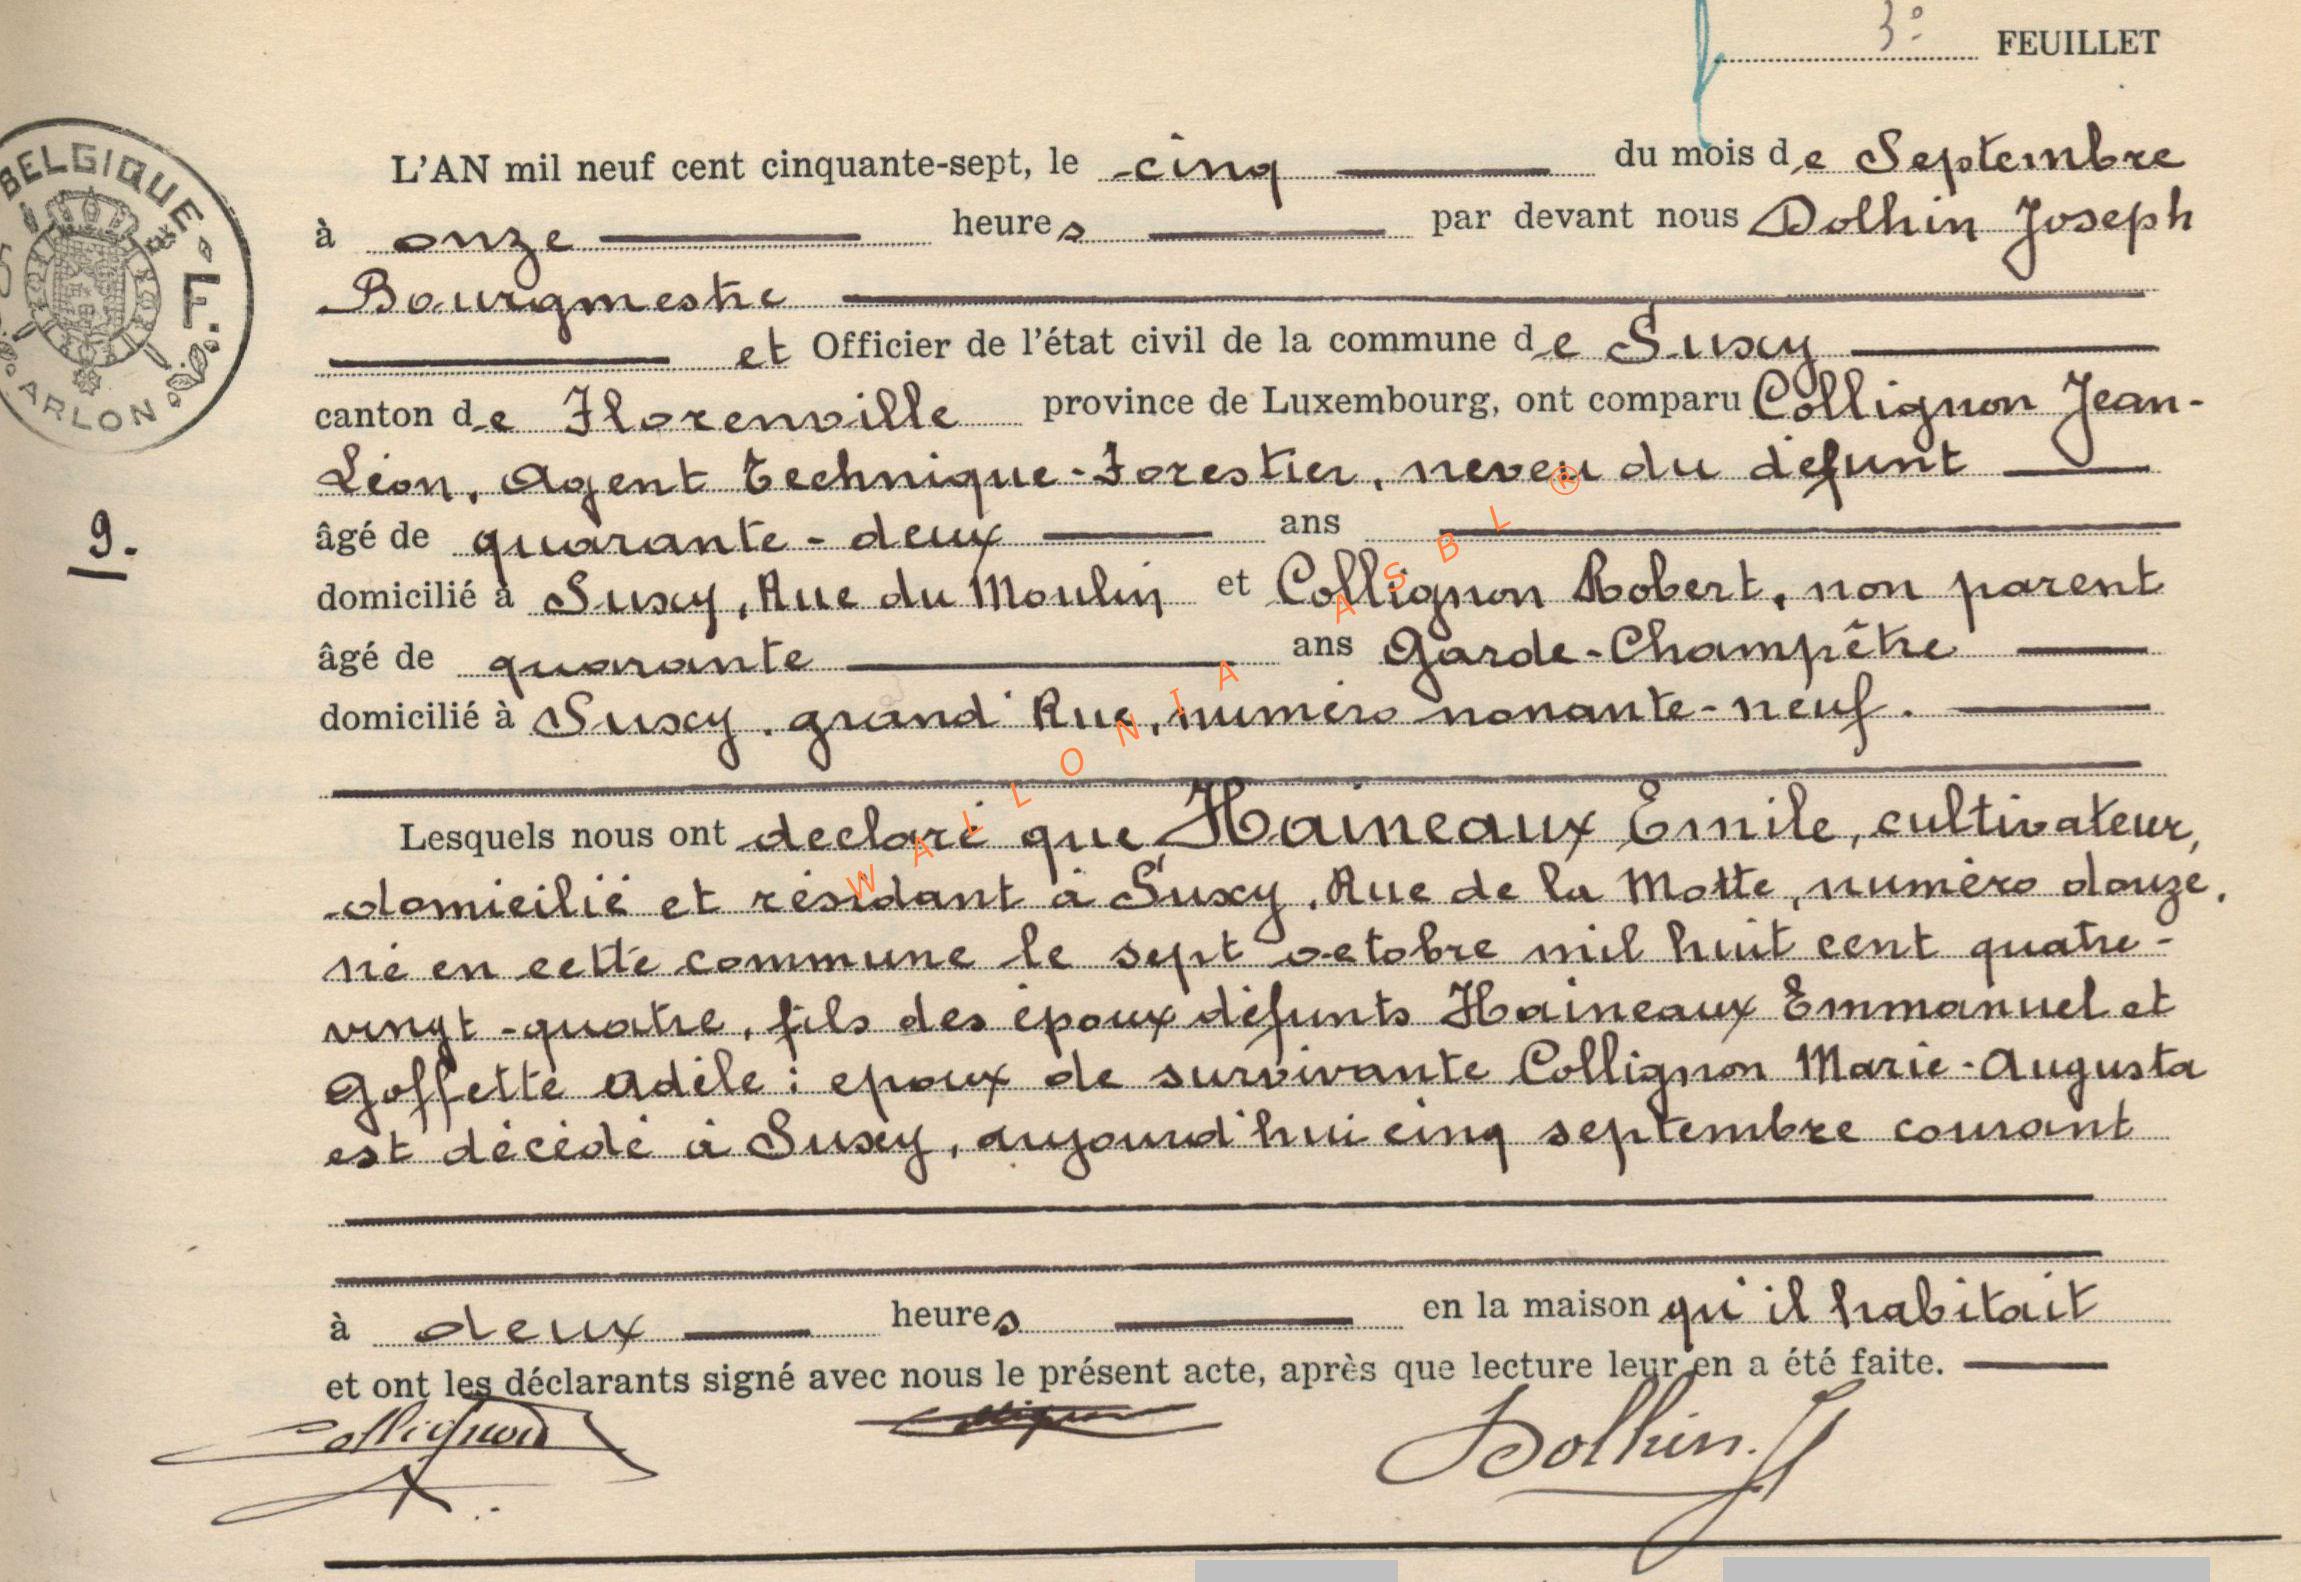 3° FEUILLET
BELGIQUE
F.
ARLON
L'AN mil neuf cent cinquante-sept, le cinq du mois de Septembre
à onze heures par devant nous Dolhin Joseph
Bourgmestre
et Officier de l'état civil de la commune de Suxy
canton de Florenville province de Luxembourg, ont comparu Collignon Jean-
Léon, Agent Technique-Forestier, neveu du défunt
âgé de quarante-deux ans
9.
domicilié à Suxy, Rue du Moulin et Collignon Robert, non parent
âgé de quarante ans Garde-Champêtre
domicilié à Suxy, grand'Rue, numéro nonante-neuf.
Lesquels nous ont déclaré que Haineaux Emile, cultivateur,
domicilié et résidant à Suxy, Rue de la Motte, numéro douze,
né en cette commune le sept octobre mil huit cent quatre-
vingt-quatre, fils des époux défunts Haineaux Emmanuel et
Goffette Adèle; époux de survivante Collignon Marie-Augusta
est décédé à Suxy, aujourd'hui cinq septembre courant
à deux heures en la maison qu'il habitait
et ont les déclarants signé avec nous le présent acte, après que lecture leur en a été faite.
Collignon Collignon Dolhin. J
WALLONIA ASBL ®